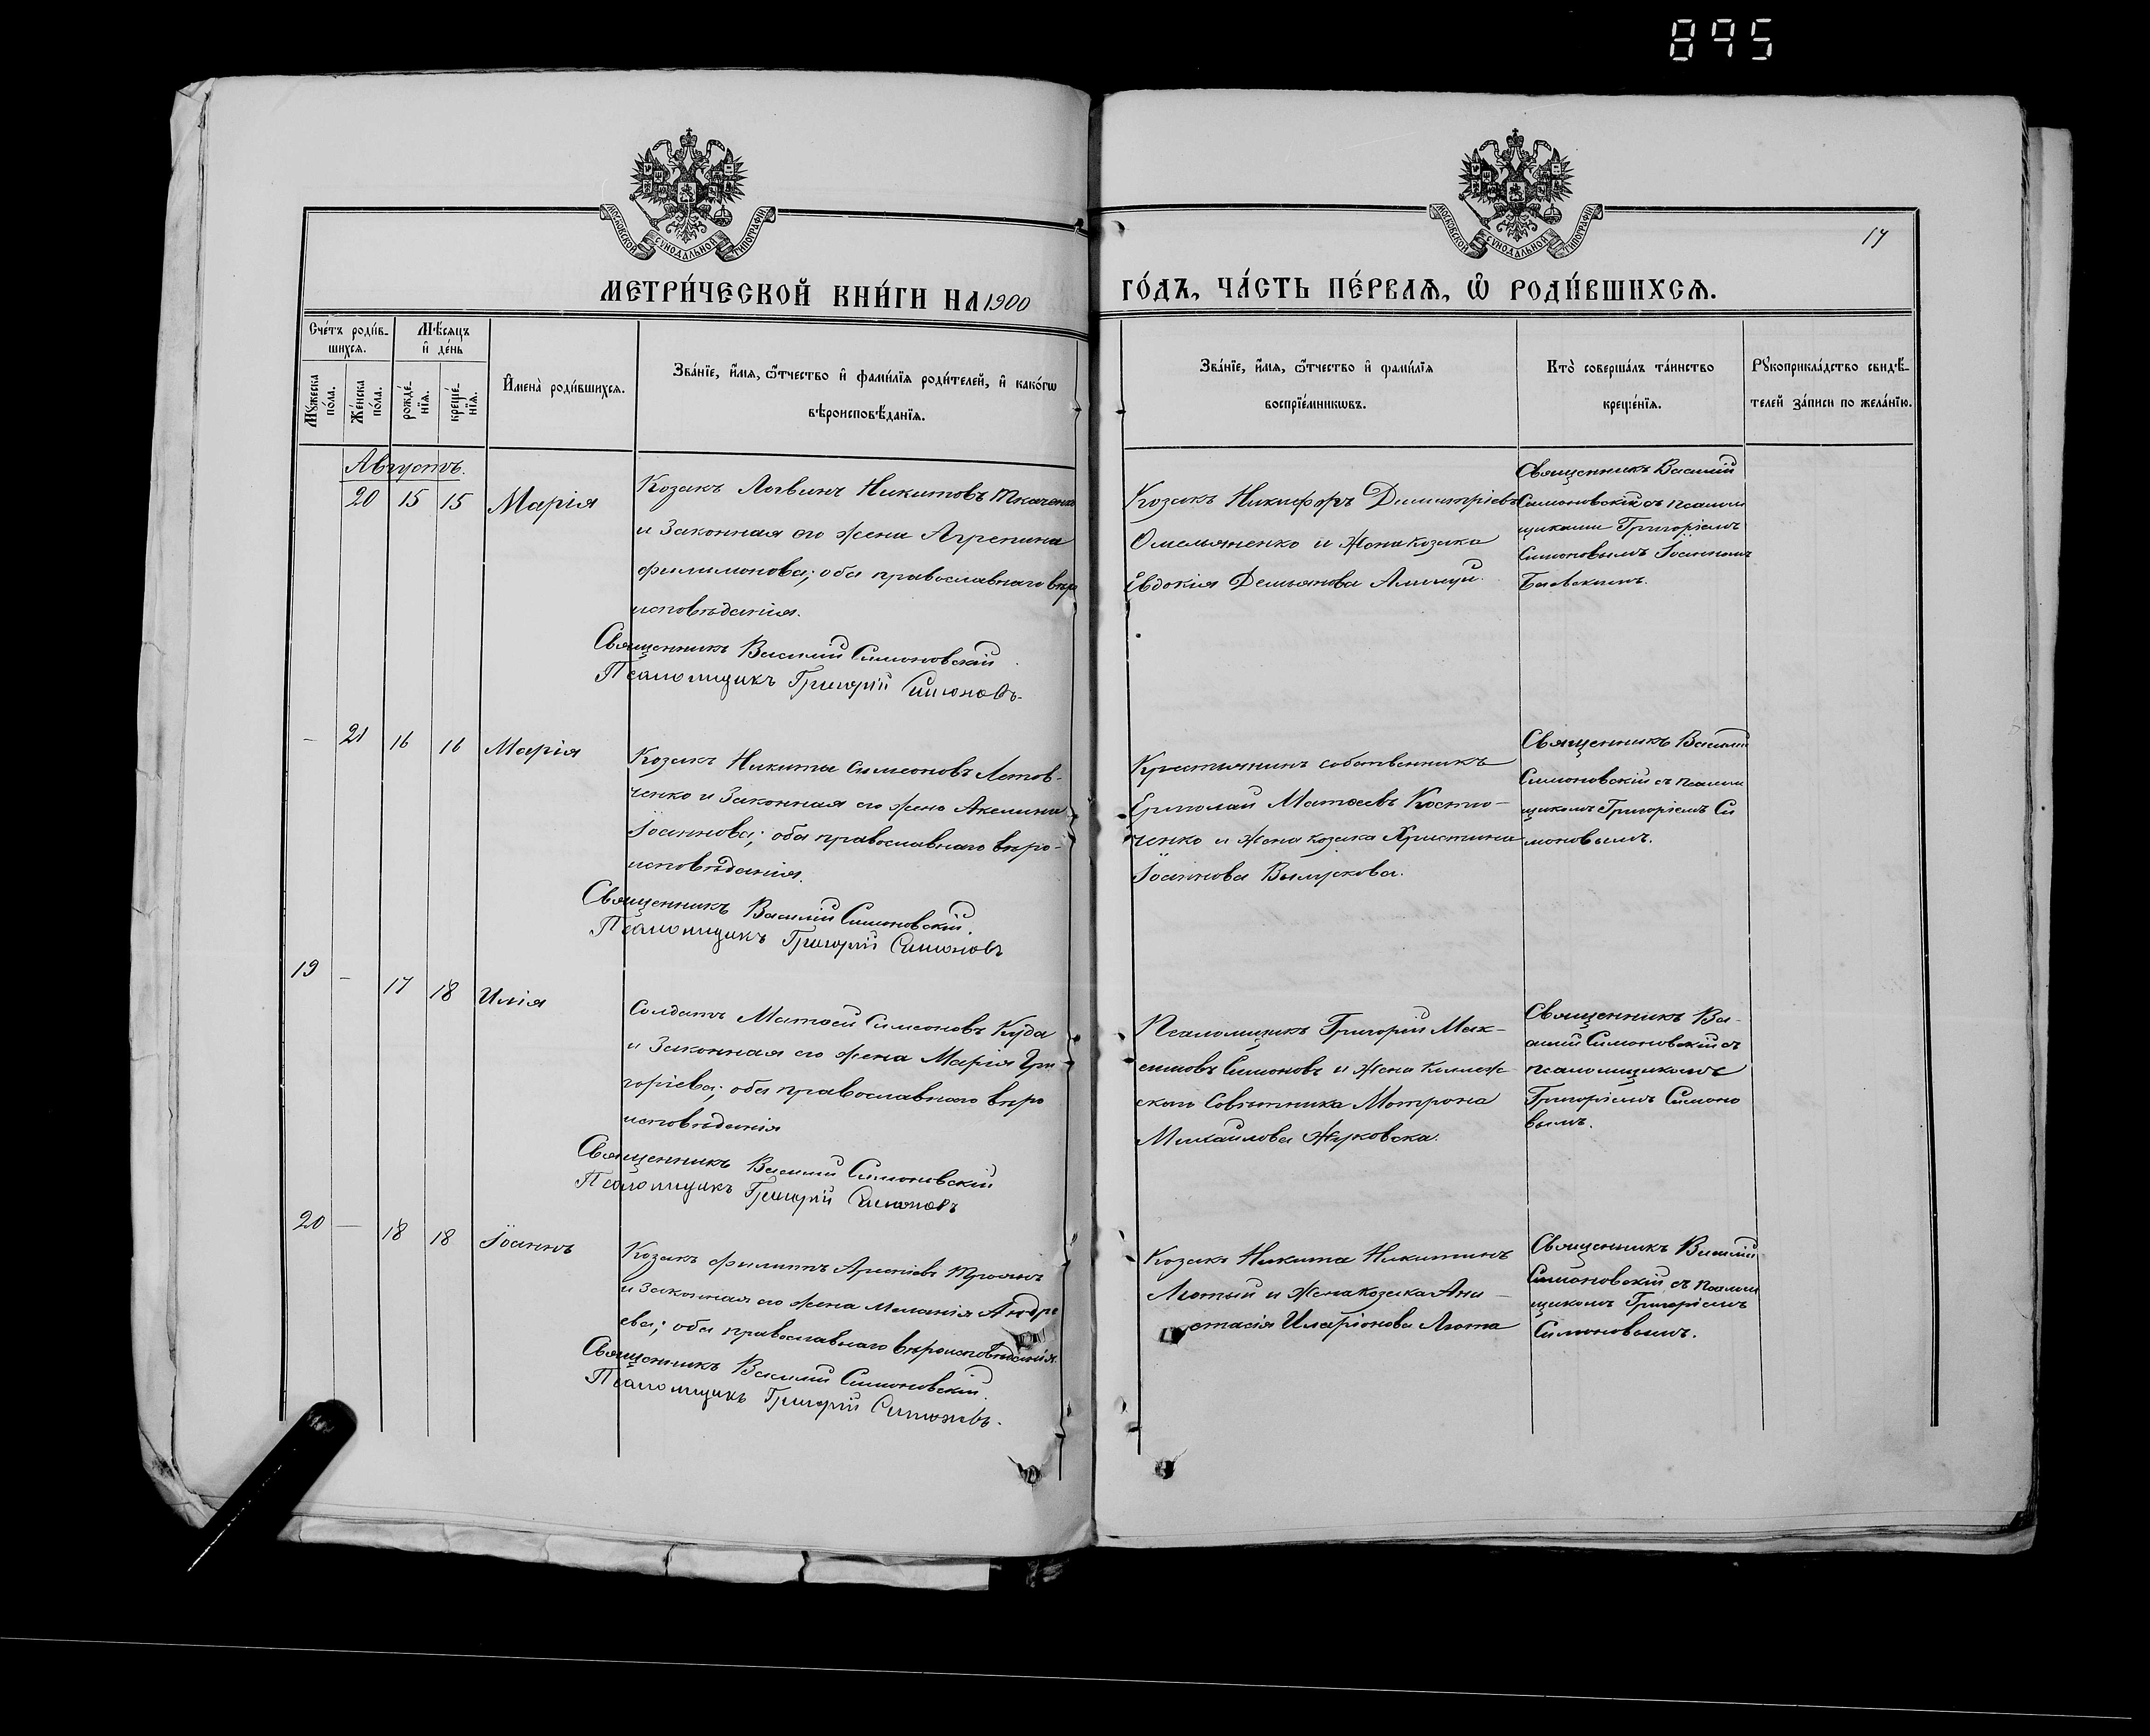 895
МОСКОВСКОЙ СѴНОДАЛЬНОЙ ТИПОГРАФІИ
МОСКОВСКОЙ СѴНОДАЛЬНОЙ ТИПОГРАФІИ
17
МЕТРИ́ЧЕСКОЙ КНИ́ГИ НА 1900
ГО́ДЪ, ЧА́СТЬ ПЕ́РВАѦ, Ѡ҆ РОДИ́ВШИХСѦ.
Сче́тъ роди́в-
шихсѧ.
Мѣ́сѧцъ
и҆ де́нь
Мꙋ́жеска
по́ла.
Же́нска
по́ла.
рожде́-
нїѧ.
креще́-
нїѧ.
И҆мена̀ роди́вшихсѧ.
Зва́нїе, и҆́мѧ, ѻ҆́тчество и҆ фами́лїѧ роди́телей, и҆ како́гѡ
вѣроисповѣ́данїѧ.
Зва́нїе, и҆́мѧ, ѻ҆́тчество и҆ фами́лїѧ
воспрїе́мникѡвъ.
Кто̀ соверша́лъ та́инство
креще́нїѧ.
Рꙋкоприкла́дство свидѣ́-
телей за́писи по жела́нїю.
Августъ.
20 15 15 Марія
Козакъ Логвинъ Никитовъ Ткаченко
и законная его жена Агрепина
Филимонова; оба православнаго вѣро
исповѣданія.
Священникъ Василій Симоновскій
Псаломщикъ Григорій Симоновъ.
Козакъ Никифоръ Димитріевъ
Омельяненко и жена козака
Евдокія Демьянова
Священникъ Василій
Симоновскій съ псалом
щиками Григоріемъ
Симоновымъ Іоанномъ
- 21 16 16 Марія
Козакъ Никита Симеоновъ Лотов-
ченко и законная его жена Акелина
Іоаннова; оба православнаго вѣро-
исповѣданія.
Священникъ Василій Симоновскій.
Псаломщикъ Григорій Симоновъ
Крестьянинъ собственникъ
Ермолай Матѳеевъ Костю-
ченко и жена козака Христина
Іоаннова
Священникъ Василій
Симоновскій съ псалом
щикомъ Григоріемъ Си
моновымъ.
19 - 17 18 Илія
Солдатъ Матѳей Симеоновъ Куда
и законная его жена Марія Гри
горіева; оба православнаго вѣро
исповѣданія
Священникъ Василій Симоновскій
Псаломщикъ Григорій Симоновъ
Псаломщикъ Григорій Мак-
симовъ Симоновъ и жена коллеж
скаго Совѣтника Мотрона
Михаилова Жуковска.
Священникъ Ва-
силій Симоновскій съ
псаломщикомъ
Григоріемъ Симоно
вымъ.
20 - 18 18 Іоаннъ
Козакъ Филиппъ Троянъ
и законная его жена Меланія Андре
ева; оба православнаго вѣроисповѣданія.
Священникъ Василій Симоновскій.
Псаломщикъ Григорій Симоновъ.
Козакъ Никита Никитинъ
Лютый и жена козака Ана-
стасія Иларіонова Люта
Священникъ Василій
Симоновскій съ псалом
щикомъ Григоріемъ
Симоновымъ.